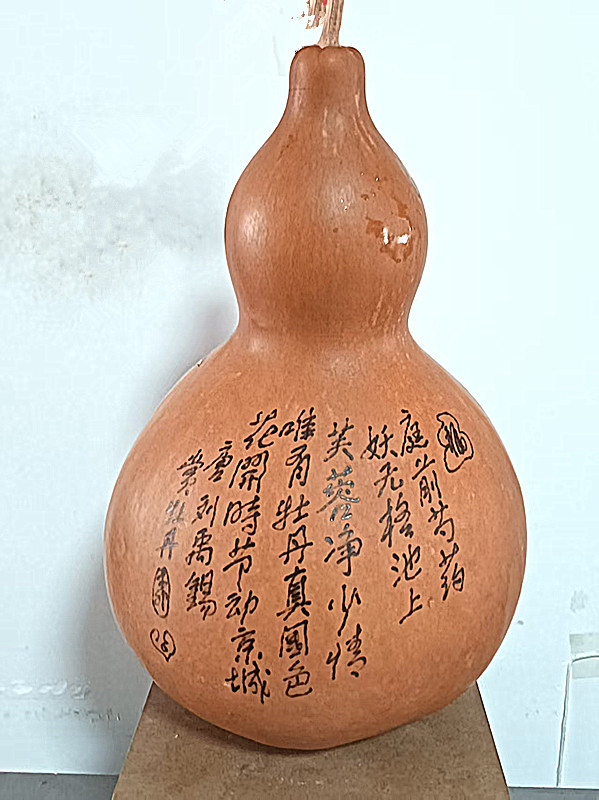 庭前芍药
妖无格池上
芙蓉净少情
唯有牡丹真國色
花開時节动京城
唐刘禹錫
赏牡丹